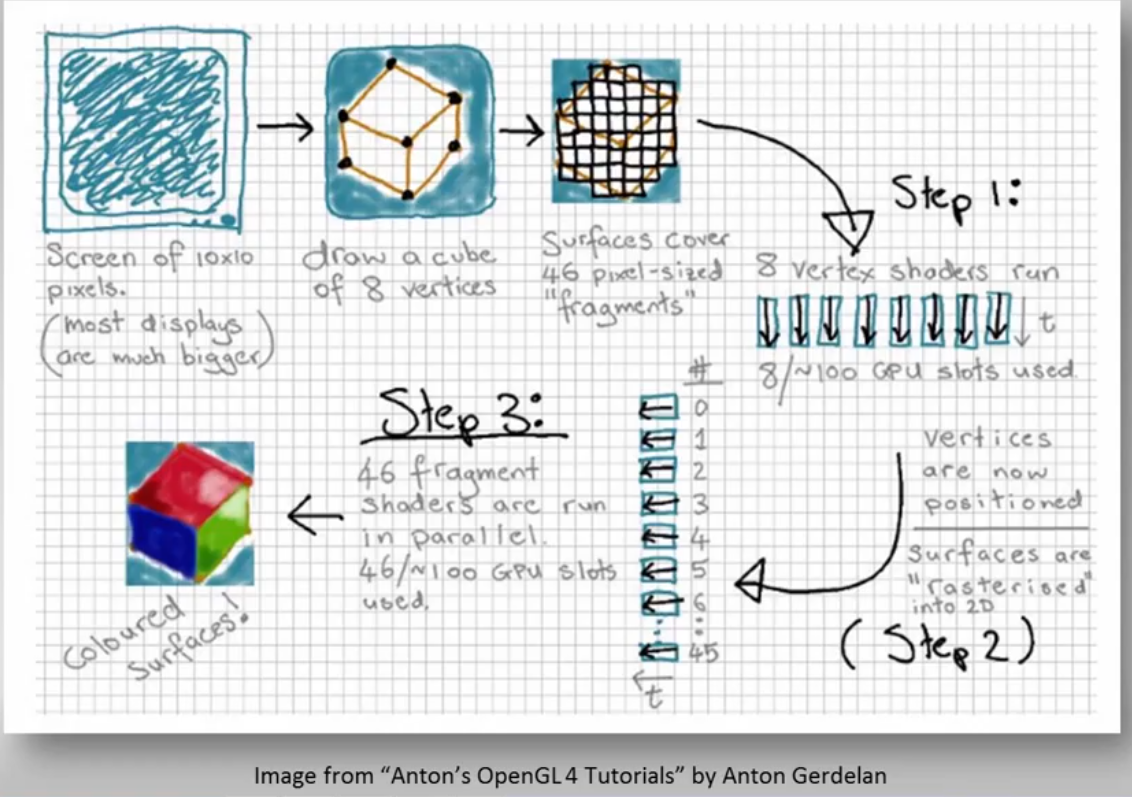 Screen of 10x10
pixels.
(most displays
are much bigger)
draw a cube
of 8 vertices
Surfaces cover
46 pixel-sized
"fragments"
Step 1:
8 vertex shaders run
t
8/~100 GPU slots used.
vertices
are now
positioned
surfaces are
"rasterised"
into 2D
(Step 2)
#
0
1
2
3
4
5
6
:
45
t
Step 3:
46 fragment
shaders are run
in parallel.
46/~100 GPU slots
used.
Coloured
Surfaces!
Image from “Anton’s OpenGL 4 Tutorials” by Anton Gerdelan